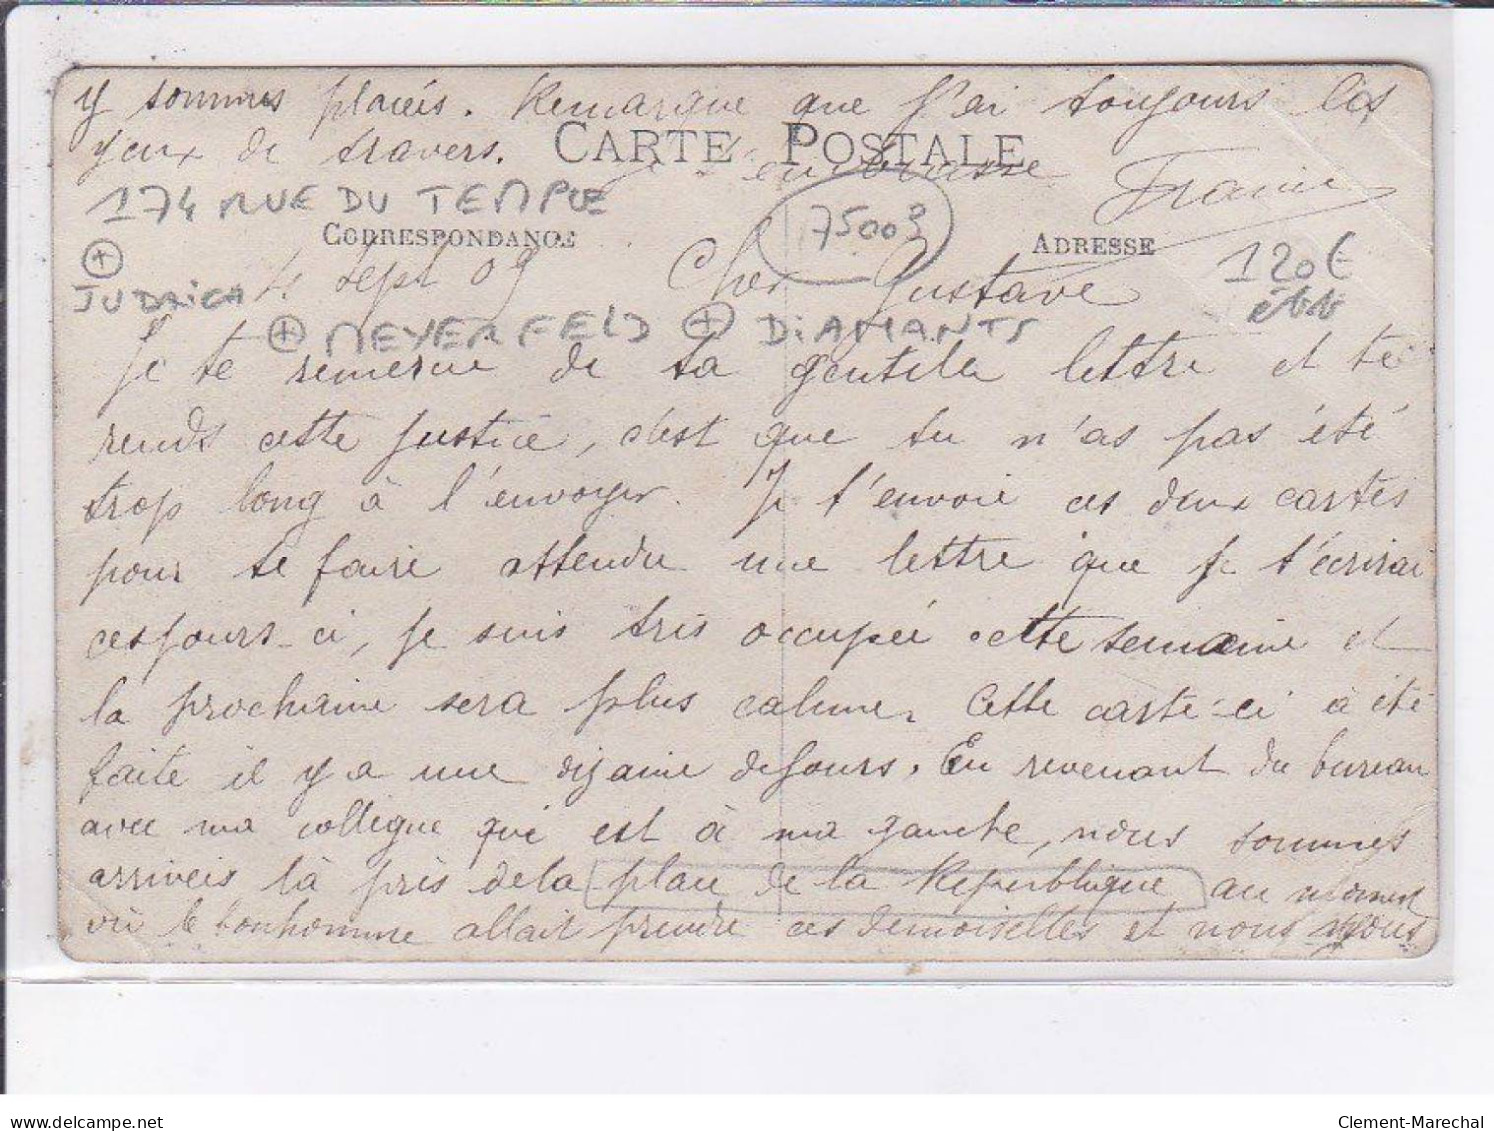 y sommes placés. Remarque que j'ai toujours les
yeux de travers.
CARTE POSTALE
Je t'embrasse
174 RUE DU TEMPLE
75003
CORRESPONDANCE
ADRESSE
120€
+
JUDAICA
4 Sept 09 Cher Gustave
+ MEYERFELD + DIAMANTS
Je te remercie de ta gentille lettre et te
rends cette justice, c'est que tu n'as pas été
trop long à l'envoyer. Je t'envoie ces deux cartes
pour te faire attendre une lettre que je t'écrirai
ces jours-ci, je suis très occupée cette semaine et
la prochaine sera plus calme. Cette carte-ci a été
faite il y a une dizaine de jours. En revenant du bureau
avec ma collègue qui est à ma gauche, nous sommes
arrivées là près de la place de la République au moment
où le bonhomme allait prendre ces demoiselles et nous nous
delcampe.net
Clement-Marechal